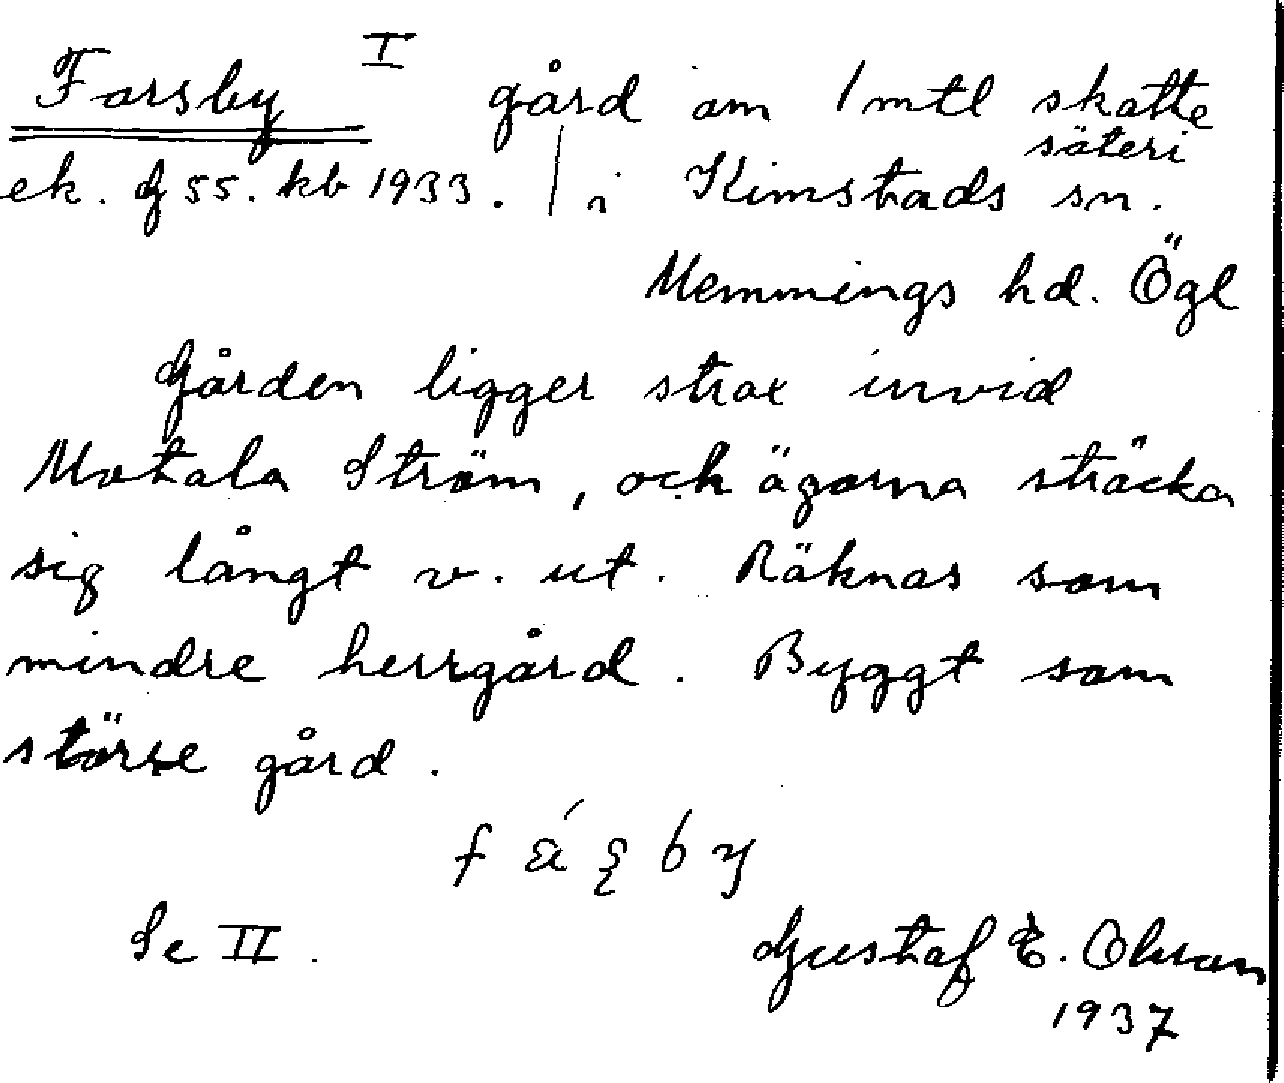 Farsby I gård om 1 mtl skatte
säteri
ek. G 55. kb 1933. | i Kimstads sn.
Memmings hd. Ögl
Gården ligger strax invid
Motala Ström, och ägorna sträcka
sig långt v. ut. Räknas som
mindre herrgård. Byggt som
större gård.
Se II.
Gustaf E. Olsson
1937